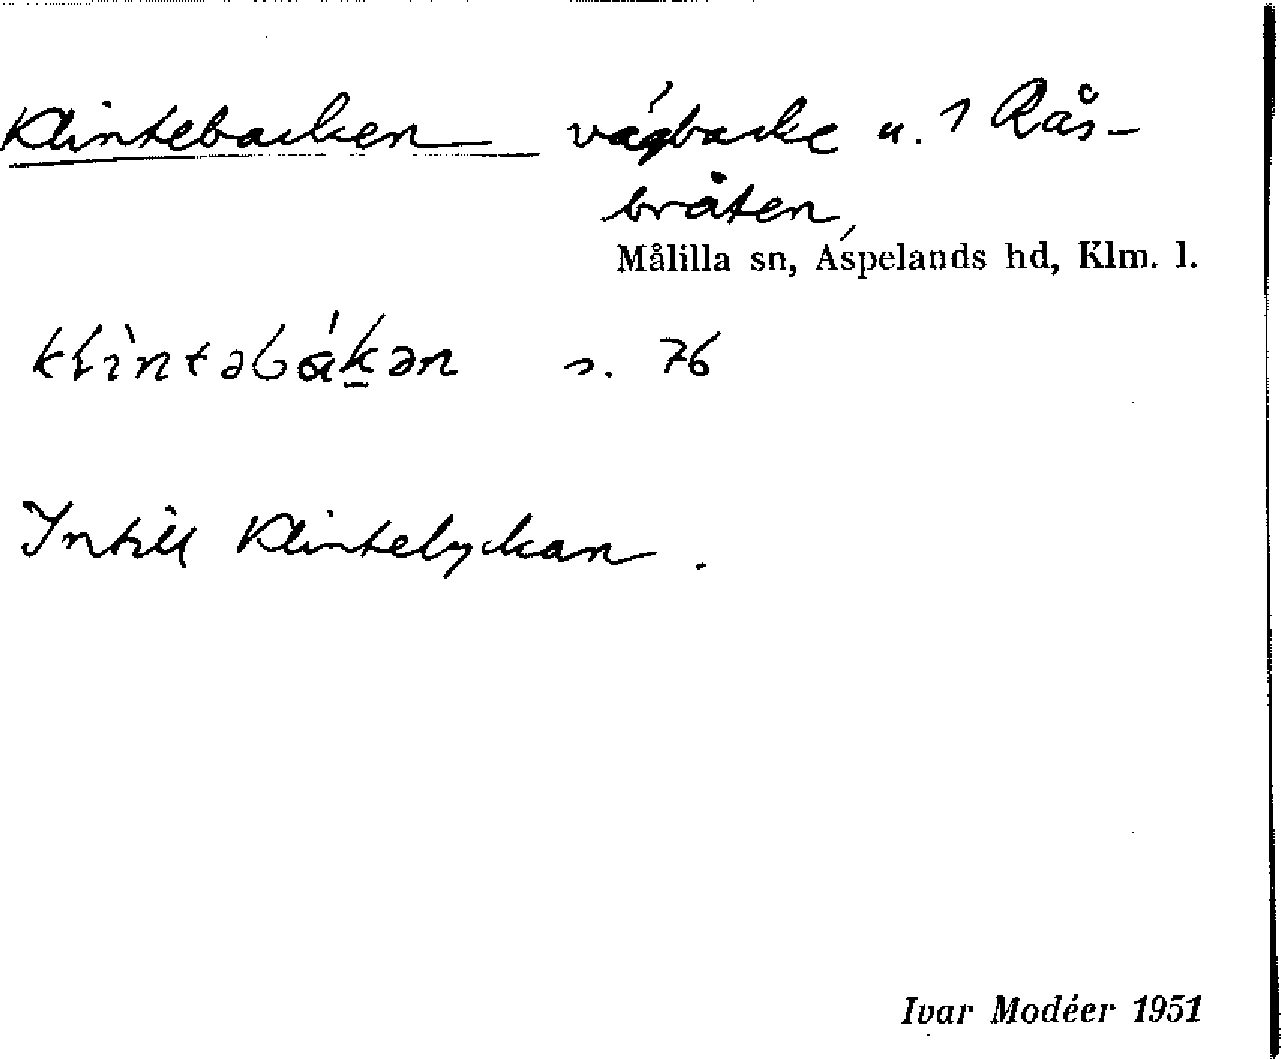 Klintebacken vägbacke u. 1 Rås-
bråten,
Målilla sn, Aspelands hd, Klm. l.
klìntəbákən s. 76
Intill Klintelyckan.
Ivar Modéer 1951